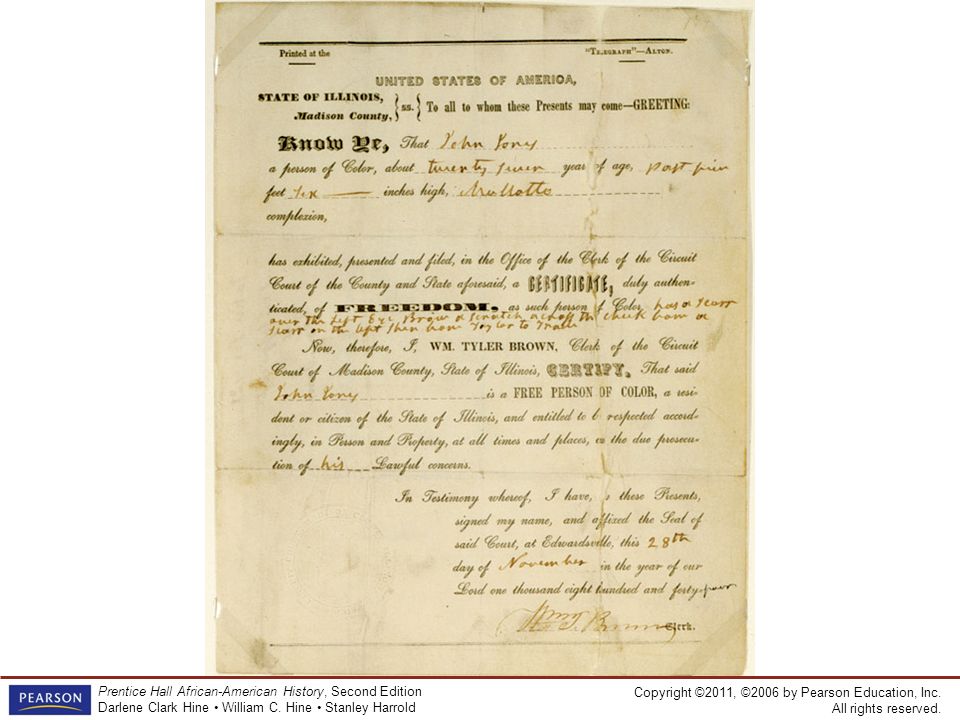 Printed at the "TELEGRAPH"—ALTON.
UNITED STATES OF AMERICA,
STATE OF ILLINOIS,
Madison County, } ss. { To all to whom these Presents may come—GREETING:
Know Ye, That John Jones
a person of Color, about twenty seven year of age, past five
feet six — inches high, Mullotto
complexion,
has exhibited, presented and filed, in the Office of the Clerk of the Circuit
Court of the County and State aforesaid, a CERTIFICATE, duly authen-
ticated, of FREEDOM. as such person of Color has a Scarr
over the Left Eye Brow a Scratch across the cheek bone a
Scarr on the left Shin bone
Now, therefore, I, WM. TYLER BROWN, Clerk of the Circuit
Court of Madison County, State of Illinois, CERTIFY, That said
John Jones is a FREE PERSON OF COLOR, a resi-
dent or citizen of the State of Illinois, and entitled to be respected accord-
ingly, in Person and Property, at all times and places, in the due prosecu-
tion of his Lawful concerns.
In Testimony whereof, I have, to these Presents,
signed my name, and affixed the Seal of
said Court, at Edwardsville, this 28th
day of November in the year of our
Lord one thousand eight hundred and forty-four
Wm T. Brown Clerk.
PEARSON
Prentice Hall African-American History, Second Edition
Darlene Clark Hine • William C. Hine • Stanley Harrold
Copyright ©2011, ©2006 by Pearson Education, Inc.
All rights reserved.